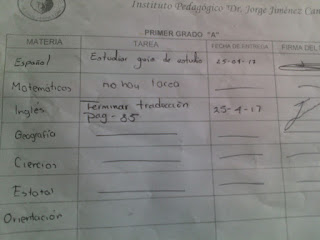 Instituto Pedagógico "Dr. Jorge Jiménez Can
PRIMER GRADO "A"
MATERIA TAREA FECHA DE ENTREGA FIRMA DEL
Español Estudiar guía de estudio 25-04-17
Matemáticas no hay tarea
Inglés terminar traducción
pag-85 25-4-17
Geografía
Ciencias
Estatal
Orientación